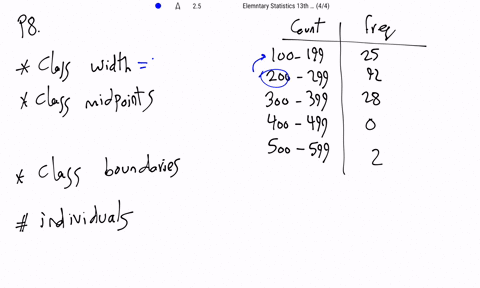 2.5 Elemntary Statistics 13th ... (4/4)
P8.
* Class width =
* Class midpoints
* Class boundaries
# individuals
Count Freq
100 - 199 25
200 - 299 92
300 - 399 28
400 - 499 0
500 - 599 2